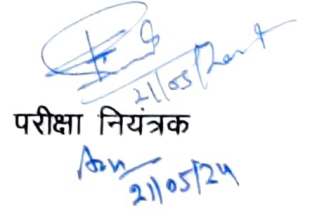 21/05/2024
परीक्षा नियंत्रक
21/05/24